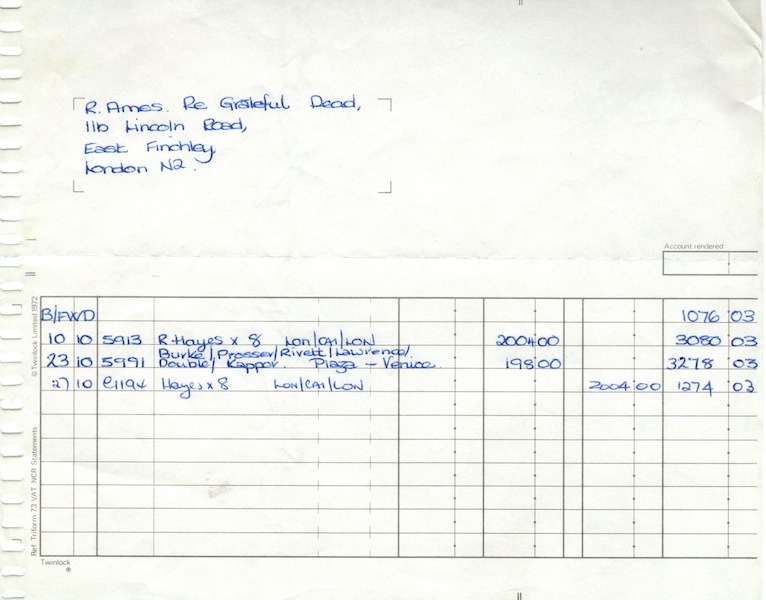 R. Ames. Re Grateful Dead,
11b Lincoln Road,
East Finchley,
London N2.
Account rendered
B/FWD 1076 03
10 10 5913 R. Hayes x 8 LON/CAI/LON 2004 00 3080 03
Burke/Prosser/Rivett/Lawrence/
23 10 5991 Double/Kappor. Plaza - Venice. 198 00 3278 03
27 10 C1194 Hayes x 8 LON/CAI/LON 2004 00 1274 03
Twinlock
®
Ref. Triform 73 VAT NCR Statements
© Twinlock Limited 1972